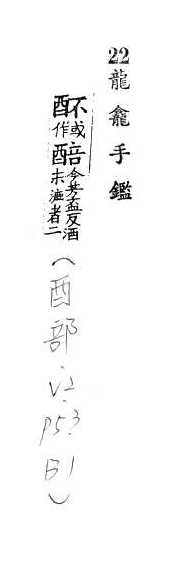 22龍龕手鑑
或作醅今芳盃反酒未漉者二(酉部.V2.P53.B1)